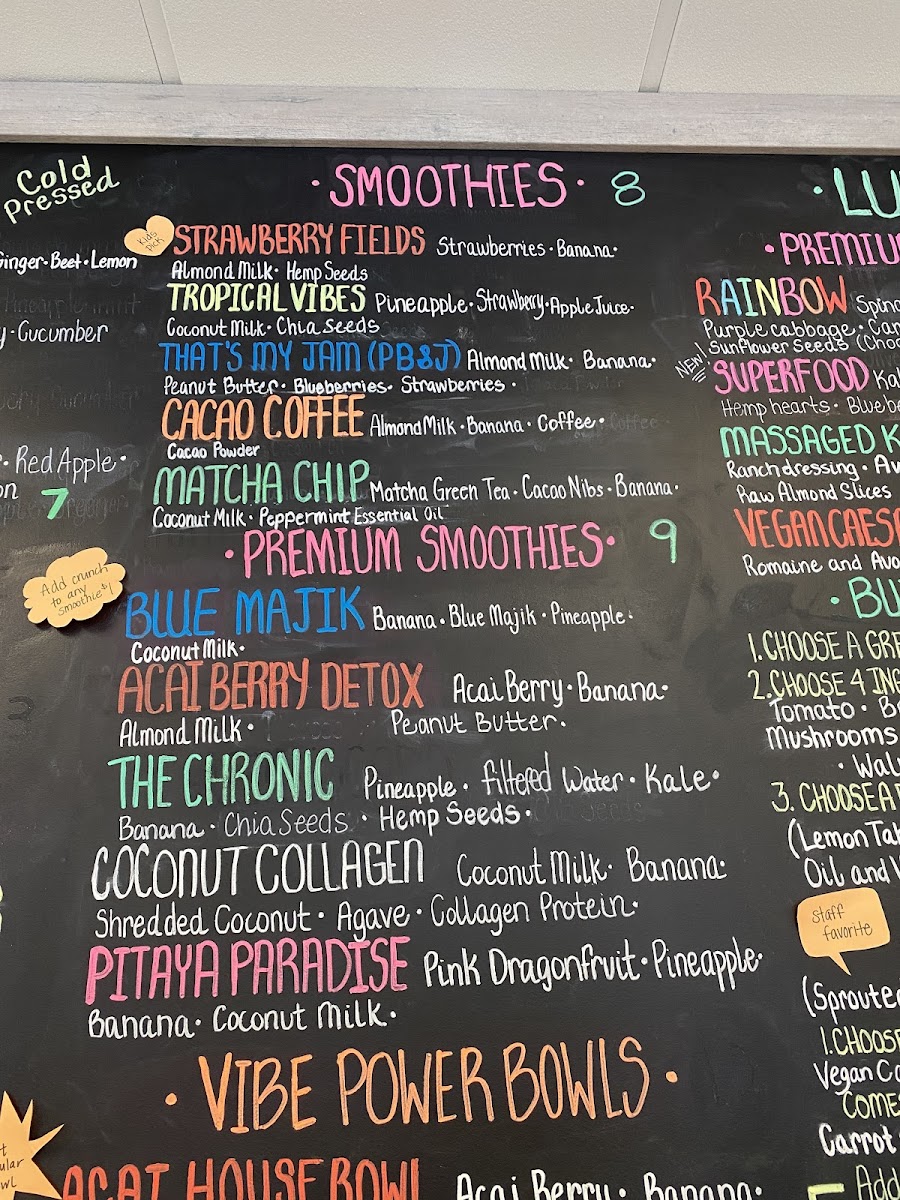 Cold
Pressed
Ginger · Beet · Lemon
Cucumber
· Red Apple ·
7
Add crunch
to any
smoothie $1
· SMOOTHIES · 8
Kids
Pick
STRAWBERRY FIELDS Strawberries · Banana ·
Almond Milk · Hemp Seeds
TROPICAL VIBES Pineapple · Strawberry · Apple Juice ·
Coconut Milk · Chia Seeds
THAT'S MY JAM (PB&J) Almond Milk · Banana ·
Peanut Butter · Blueberries · Strawberries ·
CACAO COFFEE Almond Milk · Banana · Coffee ·
Cacao Powder
MATCHA CHIP Matcha Green Tea · Cacao Nibs · Banana ·
Coconut Milk · Peppermint Essential Oil
· PREMIUM SMOOTHIES · 9
BLUE MAJIK Banana · Blue Majik · Pineapple ·
Coconut Milk ·
ACAI BERRY DETOX Acai Berry · Banana ·
Almond Milk · Peanut Butter ·
THE CHRONIC Pineapple · filtered Water · Kale ·
Banana · Chia Seeds · Hemp Seeds ·
COCONUT COLLAGEN Coconut Milk · Banana ·
Shredded Coconut · Agave · Collagen Protein ·
PITAYA PARADISE Pink Dragonfruit · Pineapple ·
Banana · Coconut Milk ·
· VIBE POWER BOWLS ·
ACAI HOUSE BOWL Acai Berry · Banana ·
· LU
· PREMIU
RAINBOW Spin
Purple cabbage · Car
Sunflower Seeds (Choo
NEW!
SUPERFOOD Kal
Hemp hearts · Blueb
MASSAGED K
Ranch dressing · Av
Raw Almond Slices
VEGAN CAESA
Romaine and Avo
· BU
1. CHOOSE A GRE
2. CHOOSE 4 ING
Tomato · B
Mushrooms
· Wal
3. CHOOSE A
(Lemon Ta
Oil and V
Staff
favorite
(Sproute
1. CHOOS
Vegan C
COME
Carrot
Add